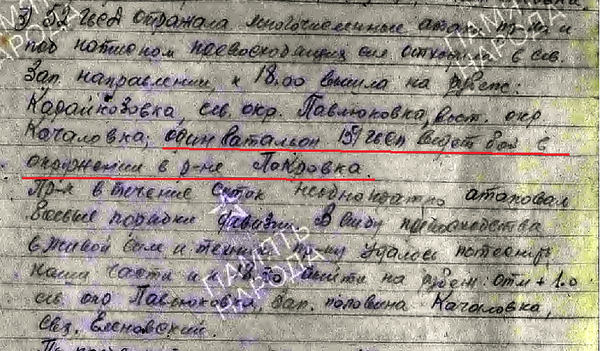 3) 52 гвсд отражала многочисленные атаки пр-ка и
под натиском превосходящих сил отходила в сев.
Зап. направлении, к 18.00 вышла на рубеж:
Карайкозовка, сев. окр. Павлюковка, вост. окр
Качаловка; один батальон 151 гвсп ведет бой в
окружении в р-не Пакровка.
Пр-к в течение суток неоднократно атаковал
боевые порядки дивизии. В виду превосходства
в живой силе и технике пр-ку удалось потеснить
наши части и к 18.00 выйти на рубеж: отм + 1.0
сев. окр Павлюковка, зап. половина Качаловка,
свх. Елековский.
ПАМЯТЬ
НАРОДА